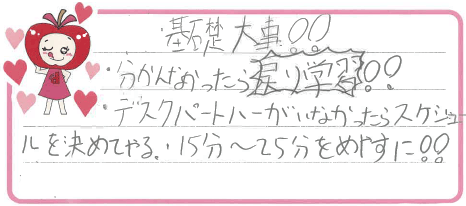 ・基礎大事!!
・分かんなかったら戻り学習!!
・デスクパートハーがいなかったらスケジュー
ルを決めてやる。15分〜25分をめやすに!!